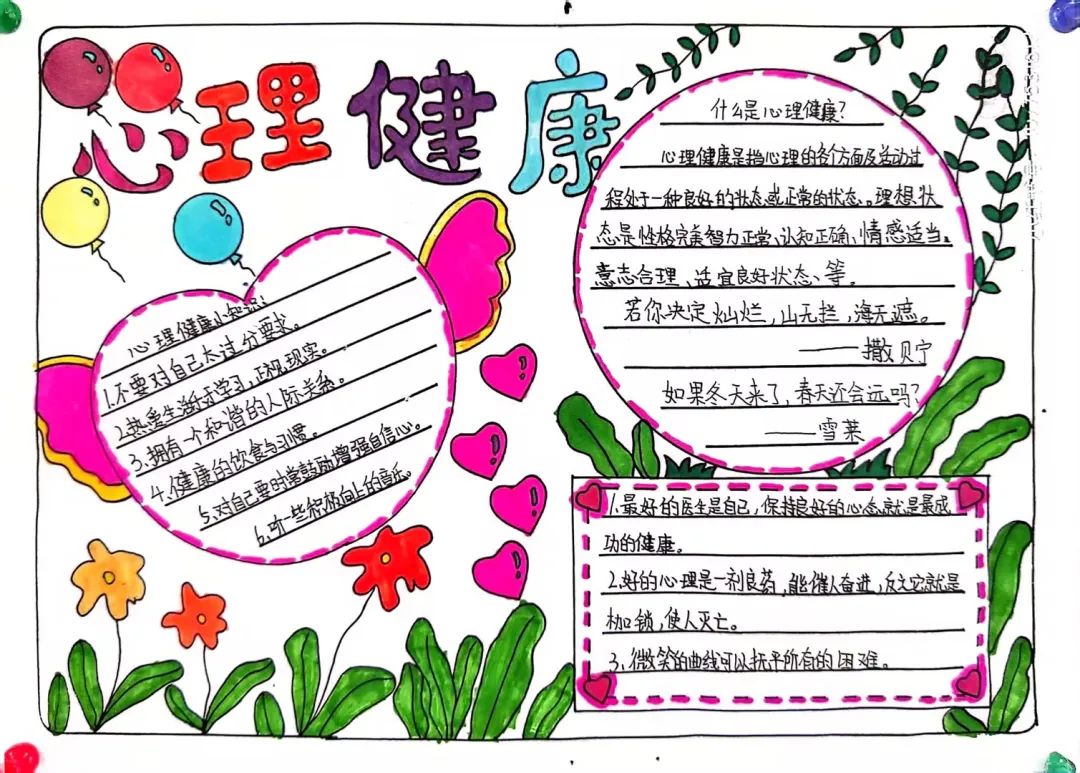 心理健康
心理健康小知识:
1.不要对自己太过分要求。
2.热爱生活乐于学习,正视现实。
3、拥有一个和谐的人际关系。
4、健康的饮食与习惯。
5、对自己要时常鼓励增强自信心。
6、听一些积极向上的音乐。
什么是心理健康?
心理健康是指心理的各个方面及活动过
程处于一种良好的状态或正常的状态。理想状
态是性格完美智力正常、认知正确、情感适当、
意志合理、适宜良好状态、等。
若你决定灿烂,山无拦,海无遮。
——撒贝宁
如果冬天来了,春天还会远吗?
——雪莱
1.最好的医生是自己,保持良好的心态就是最成
功的健康。
2.好的心理是一剂良药,能催人奋进,反之它就是
枷锁,使人灭亡。
3、微笑的曲线可以抚平所有的困难。